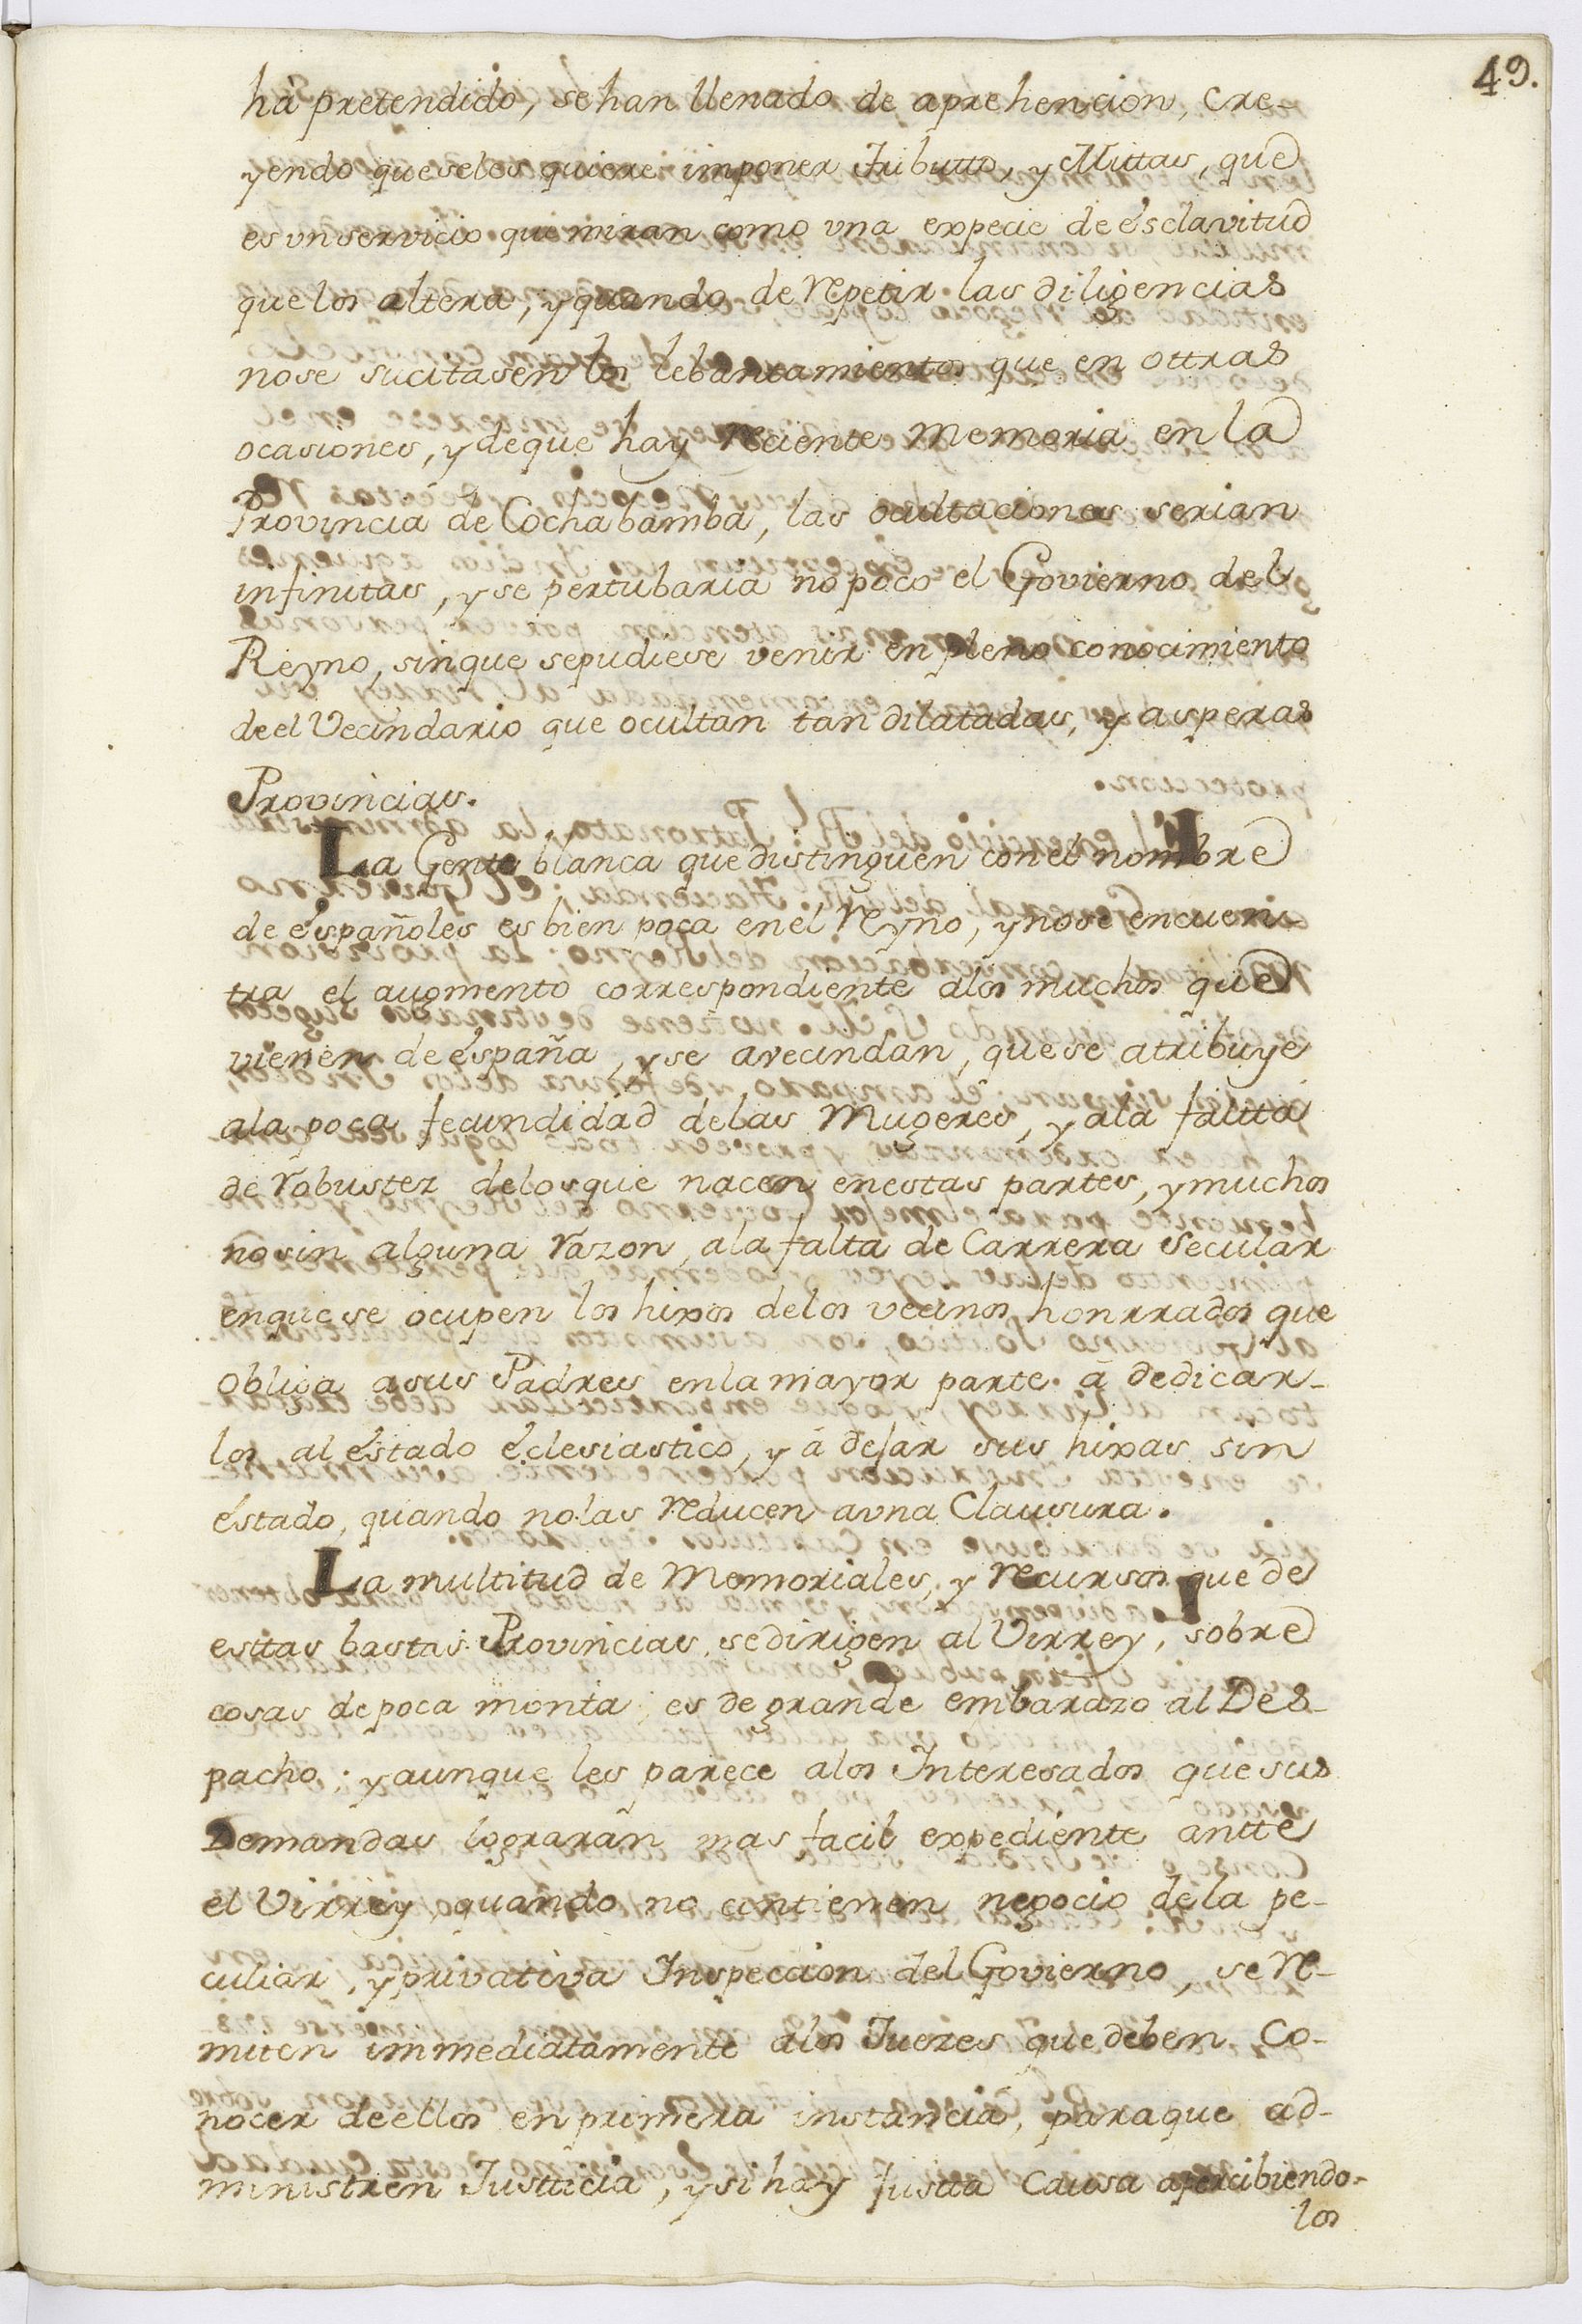 49.
ha pretendido, se han llenado de aprehencion, cre-
yendo que se les quiere imponer Tributto, y Mittas, que
es un servicio que miran como una expecie de esclavitud
que los altera, y quando de repetir las diligencias
no se sucitasen los lebantamientos que en ottras
ocasiones, y de que hay reciente memoria en la
Provincia de Cochabamba, las ocultaciones serian
infinitas, y se pertubaria no poco el Govierno del
Reyno, sin que se pudiese venir en pleno conocimiento
de el Vecindario que ocultan tan dilatadas, y asperas
Provincias.
La Gente blanca que distinguen con el nombre
de españoles es bien poca en el Reyno, y no se encuen-
tra el augmento correspondiente a los muchos que
vienen de españa, y se avecindan, que se atribuye
a la poca fecundidad de las Mugeres, y a la faltta
de robustez de los que nacen en estas partes, y muchos
no sin alguna razon, a la falta de Carrera Secular
en que se ocupen los hixos de los vecinos honrrados que
obliga a sus Padres en la mayor parte á dedicar-
los al estado eclesiastico, y á dejar sus hixas sin
estado, quando no las reducen a una Clausura.
La multitud de Memoriales, y recursos que de
esttas bastas Provincias, se dirigen al Virrey, sobre
cosas de poca monta, es de grande embarazo al Des-
pacho; y aunque les parece a los Interesados que sus
Demandas lograrán mas facil expediente antte
el Virrey, quando no contienen negocio de la pe-
culiar, y privativa Inspeccion del Govierno, se re-
miten immediatamente a los Juezes que deben co-
nocer de ellos en primera instancia, para que ad-
ministren Justticia, y si hay Justta Causa apercibiendo-
los